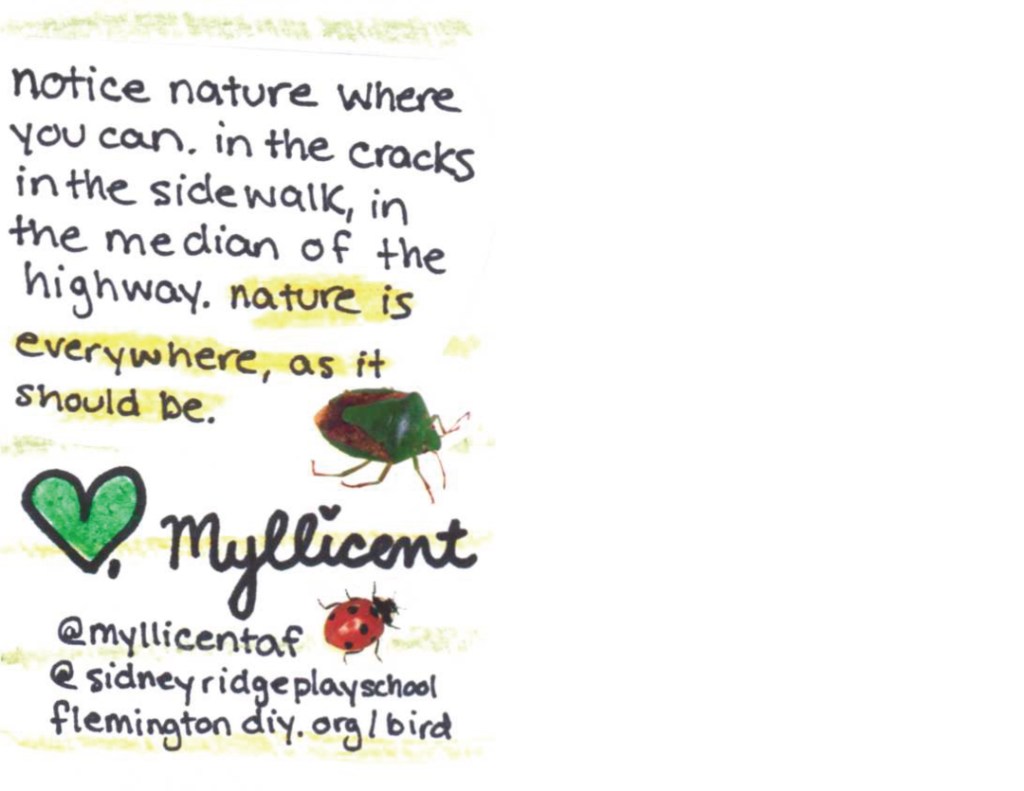 notice nature where
you can. in the cracks
in the sidewalk, in
the median of the
highway. nature is
everywhere, as it
should be.
, Myllicent
@myllicentaf
@sidneyridgeplayschool
flemingtondiy.org/bird